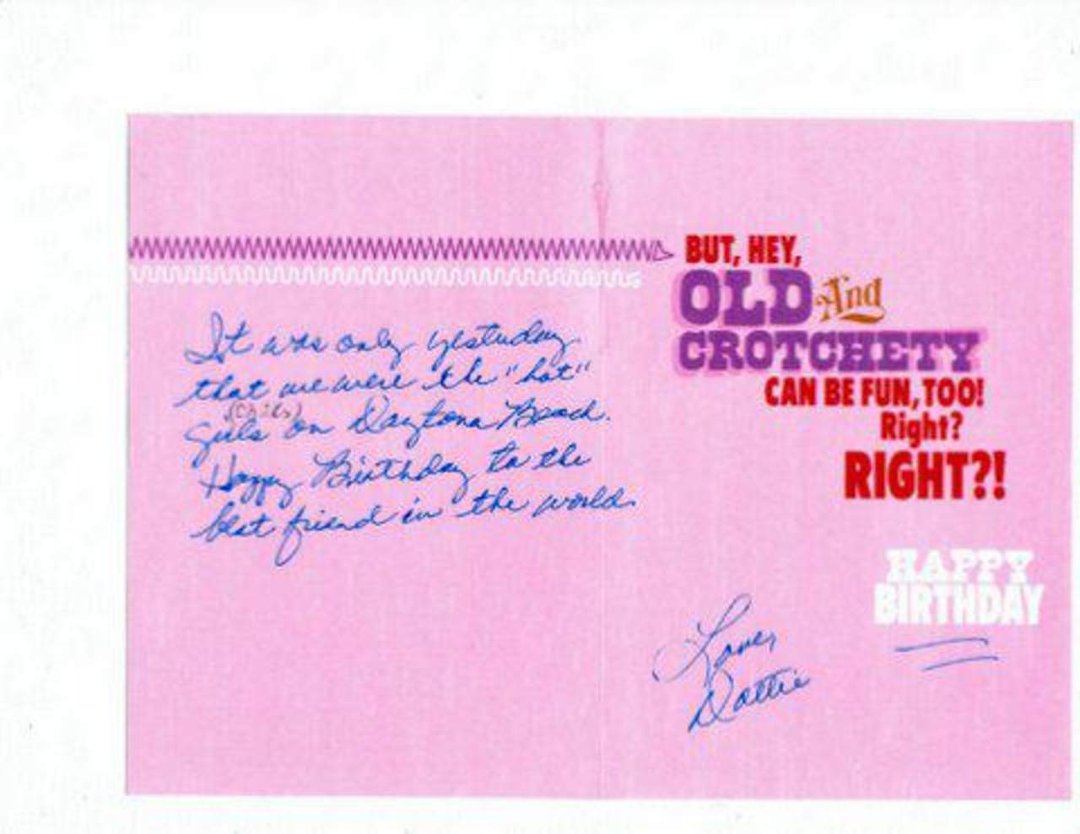 It was only yesterday
that we were the "hot"
girls on Daytona Beach.
Happy Birthday to the
best friend in the world.
BUT, HEY,
OLD And
CROTCHETY
CAN BE FUN, TOO!
Right?
RIGHT?!
HAPPY
BIRTHDAY
Love,
Dottie